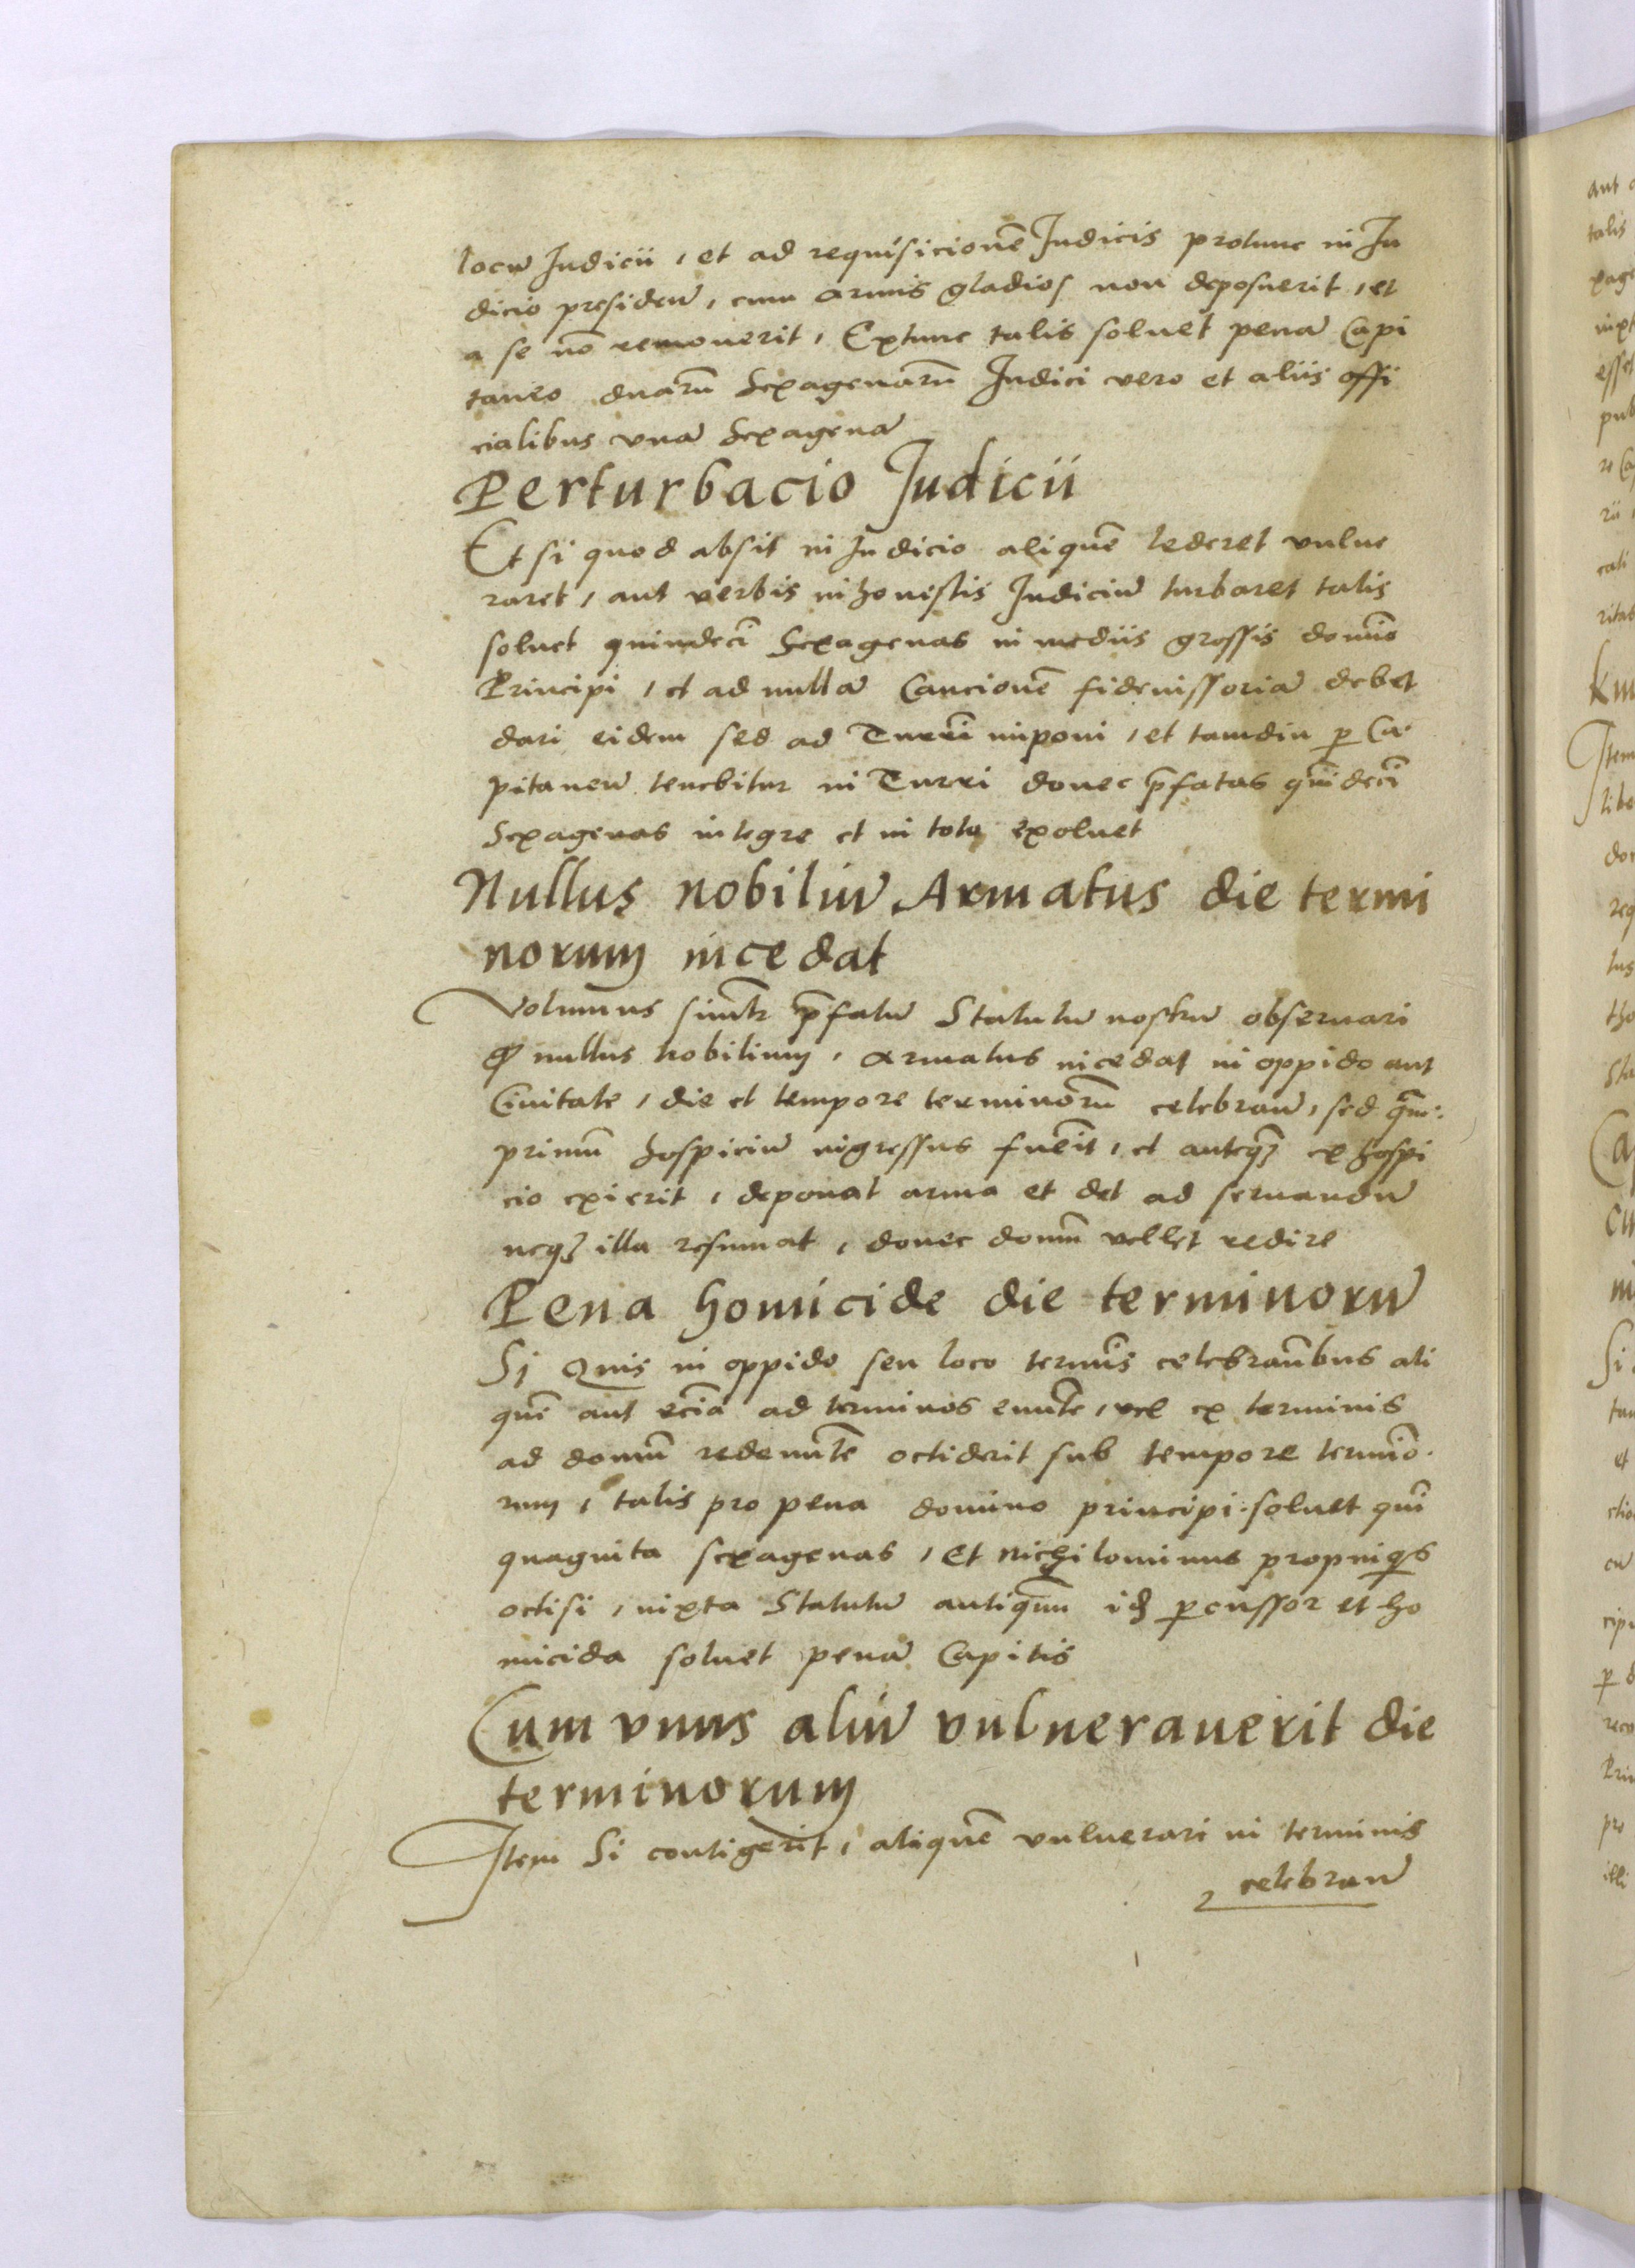 locū Judicii, et ad requisicionē Judicis protunc in Ju
dicio presideñ, cum armis gladios non deposuerit, et
a se nō remouerit, Extunc talis soluet penā Capi
taneo duarū Sexagenarū Judici vero et aliis offi
cialibus vnā Sexagenā
Perturbacio Judicii
Et si quod absit in Judicio aliquē lederet vulne
raret, aut verbis inhonestis Judiciū turbaret talis
soluet quindecī Sexagenas in mediis grossis domīo
Principi, et ad nullā Caucionē fideiussoriā debet
dari eidem sed ad Turrī imponi, et tamdiu ꝑ Ca-
pitaneū tenebitur in Turri donec p̄fatas quīdecī
Sexagenas integre et in toto exoluet
Nullus nobiliū Armatus die termi
norum incedat
Volumus simlr̄ p̄fatū Statutū nostrū obseruari
ꝙ nullus nobilium, armatus incedat in oppido aut
Ciuitate, die et tempore terminorū celebrañ, sed q̄m-
primū hospiciū ingressus fuerit, et anteqꝫ ex hospi
cio exierit, deponat arma et det ad seruandū
neqꝫ illa resumat, donec domū vellet redire
Pena homicide die terminorū
Si Quis in oppido seu loco termīs celebrañbus ali
quē aut eciā ad terminos eunte, vel ex terminis
ad domū redeuntē occiderit sub tempore termīo-
rum, talis pro pena domino principi soluet qui
quaginta sexagenas, et nichilominus propinq̄s
occisi, iuxta Statutū antiquū idꝫ ꝑcussor et ho
micida soluet penā Capitis
Cum vnus aliū vulnerauerit die
terminorum
Item Si contigerit, aliquē vulnerari in terminis
celebrañ